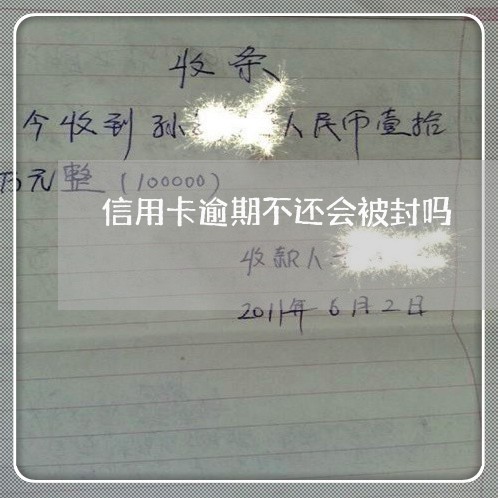 收条
今收到孙 人民币壹拾
万元整（100000）
信用卡逾期不还会被封吗
收款人
2011年6月2日